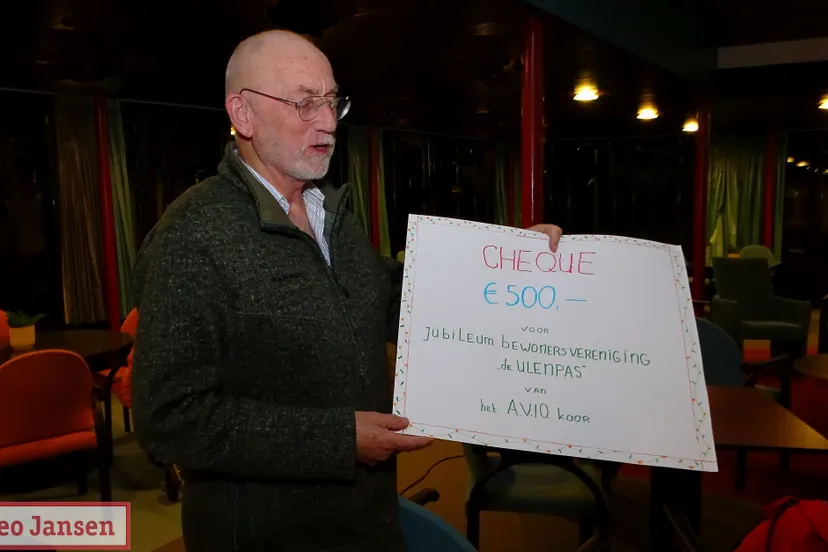 CHEQUE
€500,—
VOOR
JUBILEUM BEWONERSVERENIGING
„de ULENPAS"
VAN
het A.V.I.O. KOOR
eo Jansen